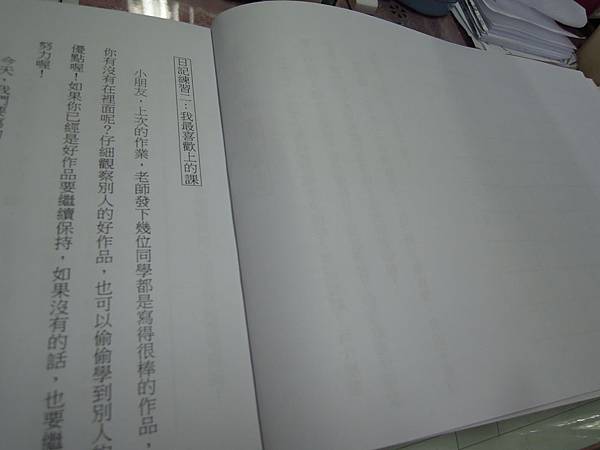 日記練習二：我最喜歡上的課
小朋友，上次的作業，老師發下幾位同學都是寫得很棒的作品，
你有沒有在裡面呢？仔細觀察別人的好作品，也可以偷偷學到別人的
優點喔！如果你已經是好作品要繼續保持，如果沒有的話，也要繼
努力喔！
今天，我們要寫